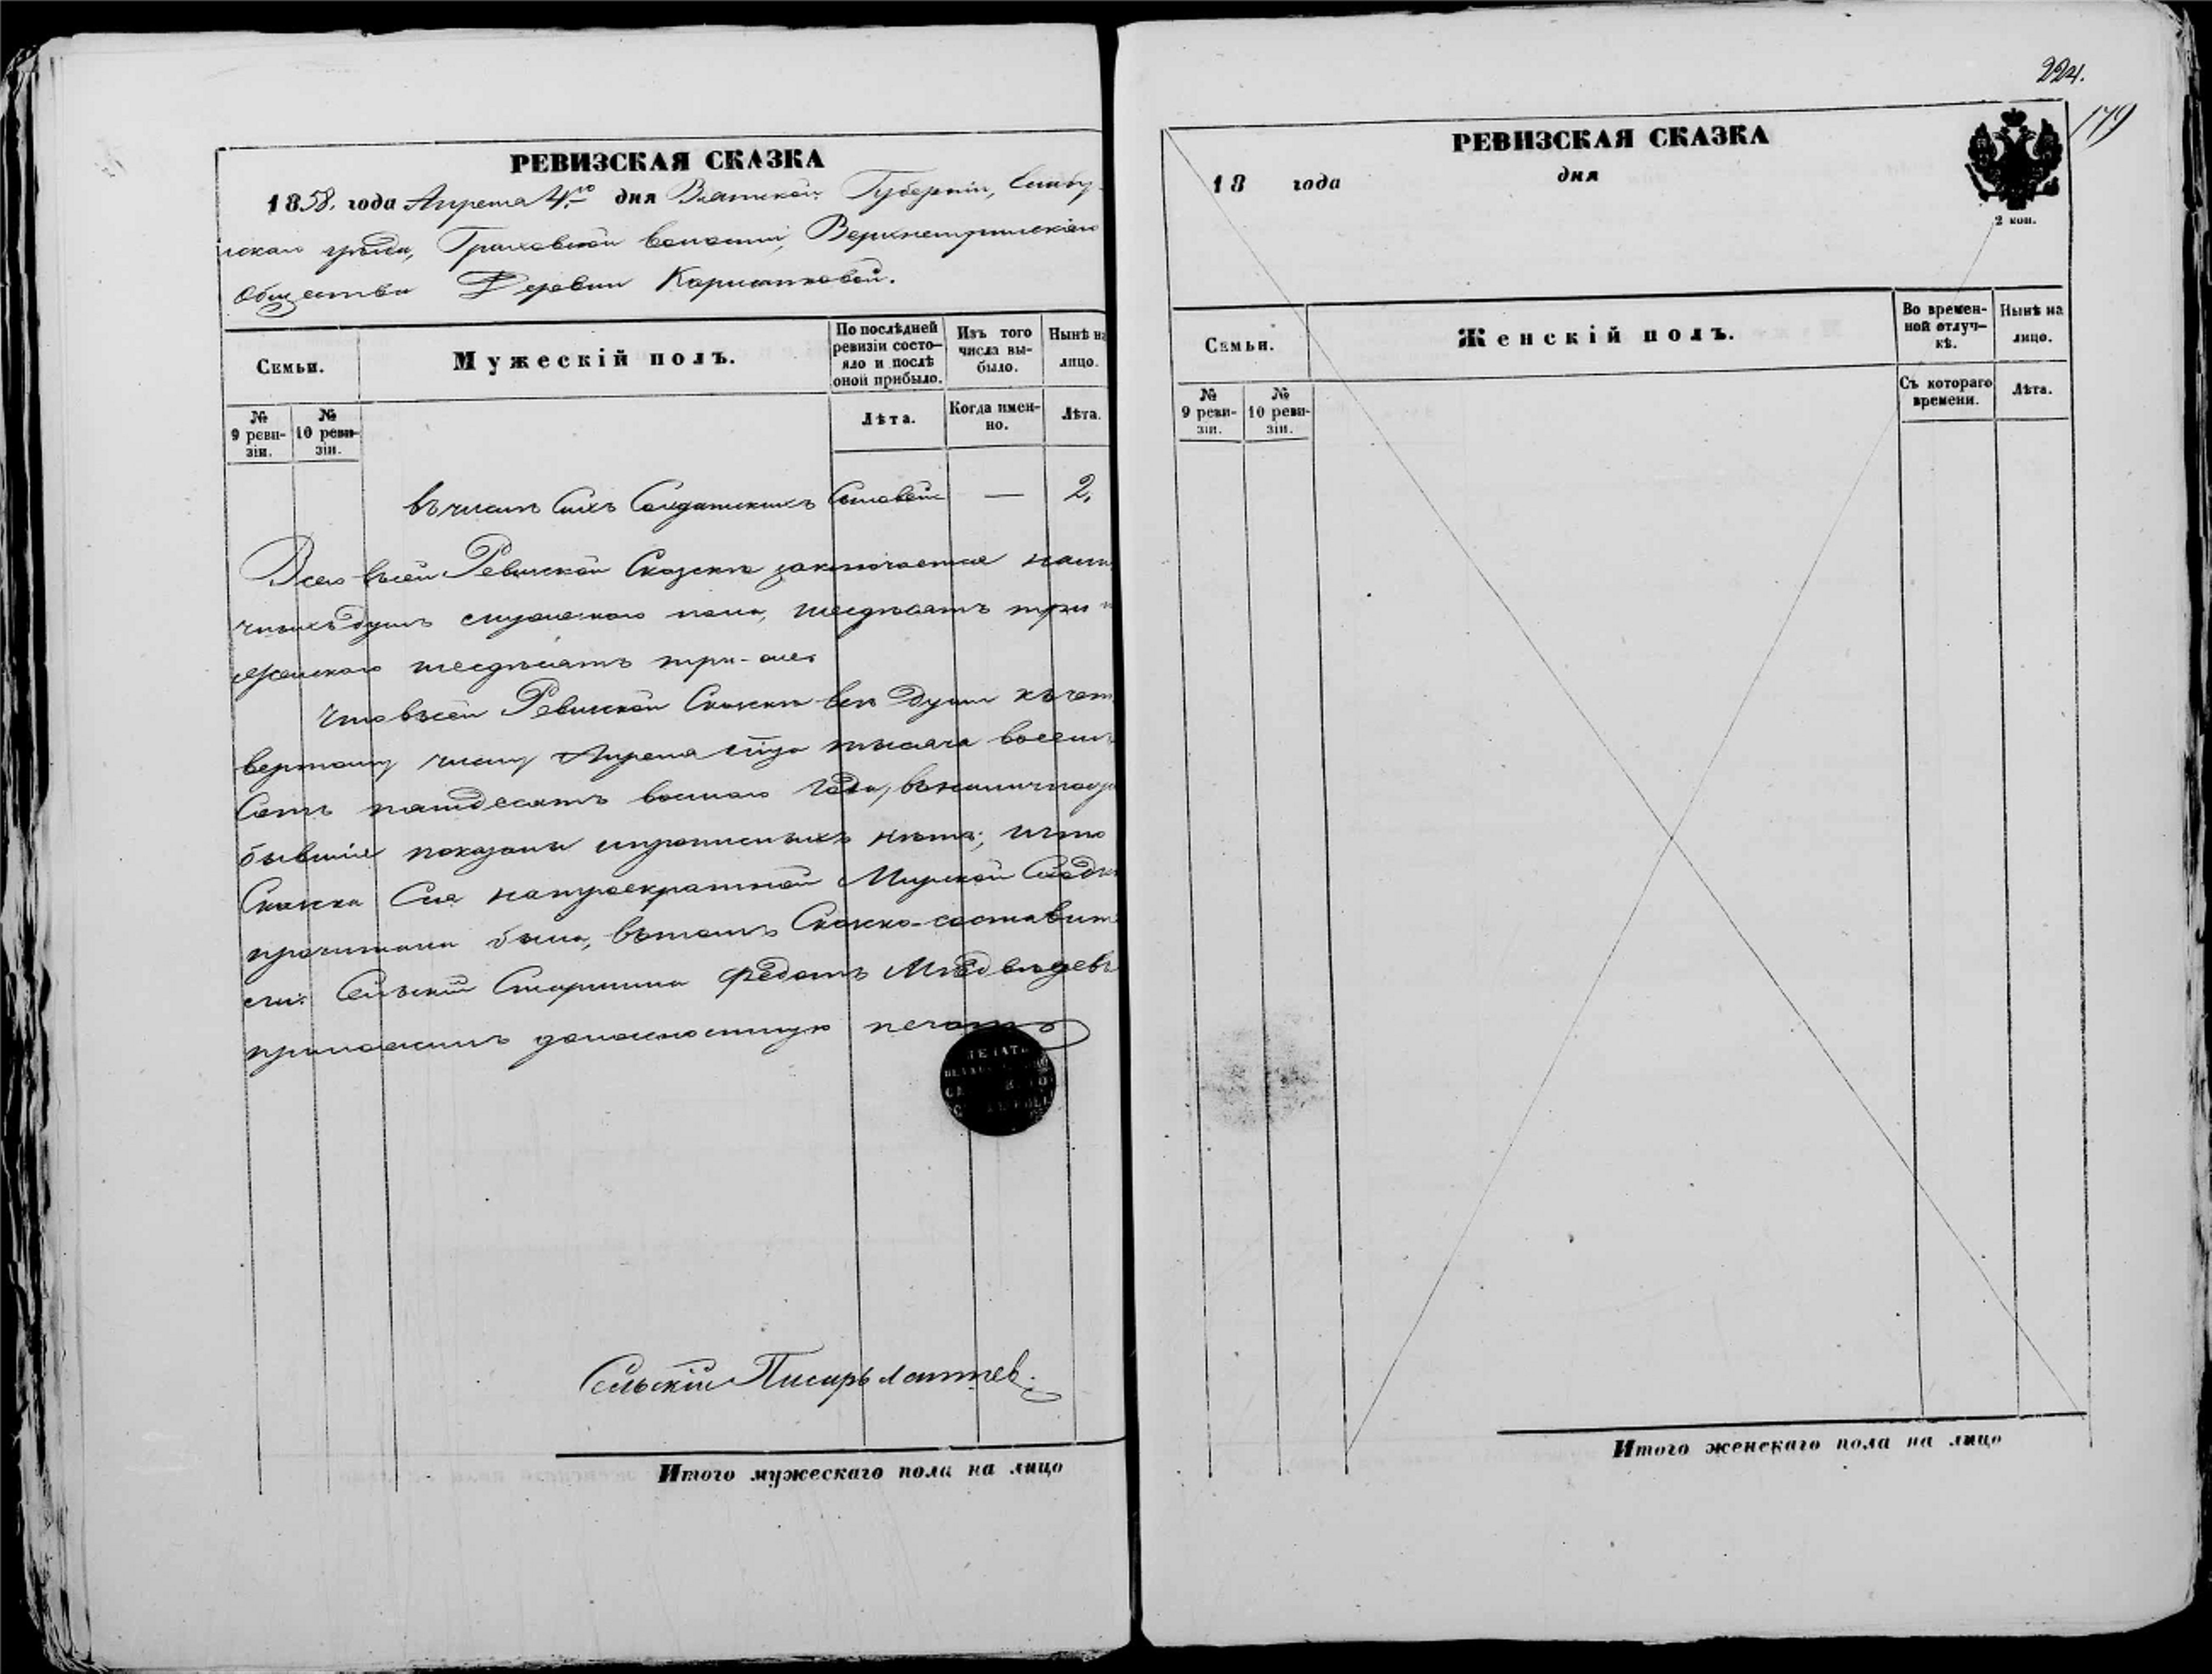 РЕВИЗСКАЯ СКАЗКА
1858. года Апреля 4го дня Вятской Губернiи, Елабу-
жскаго уѣзда, Граховской волости, Верхне
Общества Деревни
Семьи.
Мужескiй полъ.
По послѣдней ревизiи состо-
яло и послѣ оной прибыло.
Изъ того числа вы-
было.
Нынѣ на лицо.
№ 9 реви-
зiи.
№ 10 реви-
зiи.
Лѣта.
Когда имен-
но.
Лѣта.
въ числѣ Сихъ Солдатскихъ Сыновей — 2.
Всего въ сей Ревизской Сказкѣ заключается нали
чныхъ душъ мужескаго пола, шесдѣсятъ три и
женскаго шесдѣсятъ три-же.
Что въ сей Ревизской Сказкѣ всѣ души къ чет
вертому числу Апреля сего тысяча восемь
Сотъ пятдесятъ восмаго года, въ налично
бывшiе показаны и прописныхъ нѣтъ; и что
Сказка Сiя на троекратной Мирской Сход
прочитана была, въ томъ Сказко-составит
ели: Сельскiй Старшина Федотъ Мѣдвѣдевъ
приложилъ должностную печать
ПЕЧАТЬ
Сельскiй Писарь Лаптев.
Итого мужескаго пола на лицо
224.
179
РЕВИЗСКАЯ СКАЗКА
18 года дня
2 коп.
Семьи.
Женскiй полъ.
Во времен-
ной отлуч-
кѣ.
Нынѣ на лицо.
№ 9 реви-
зiи.
№ 10 реви-
зiи.
Съ котораго времени.
Лѣта.
Итого женскаго пола на лицо